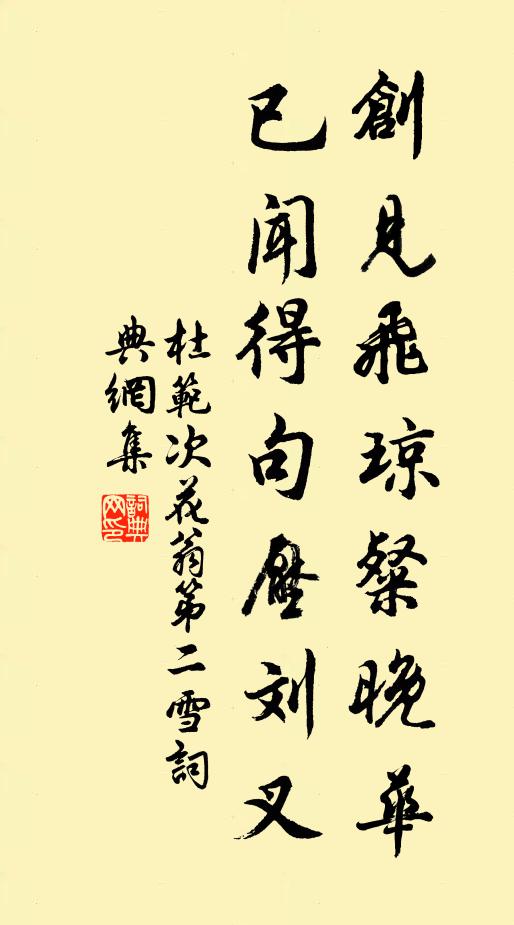 創見飛琼粲晚華
已闻得句壓刘叉
杜範次花翁第二雪詞
典網集
詞典網印